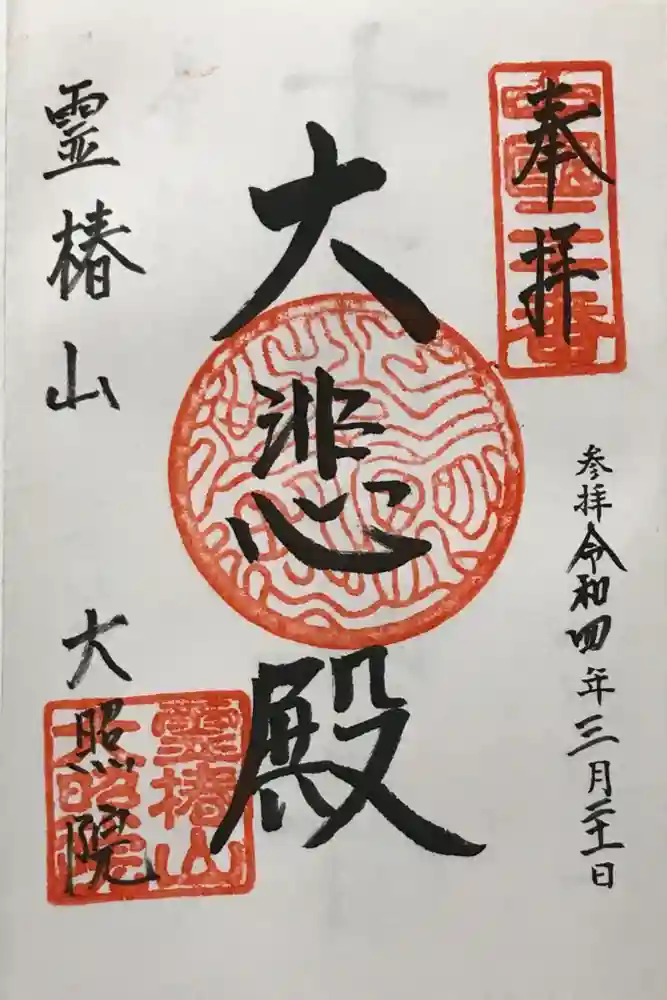 奉拝
参拝令和四年三月二十一日
大悲殿
霊椿山 大照院
霊椿山